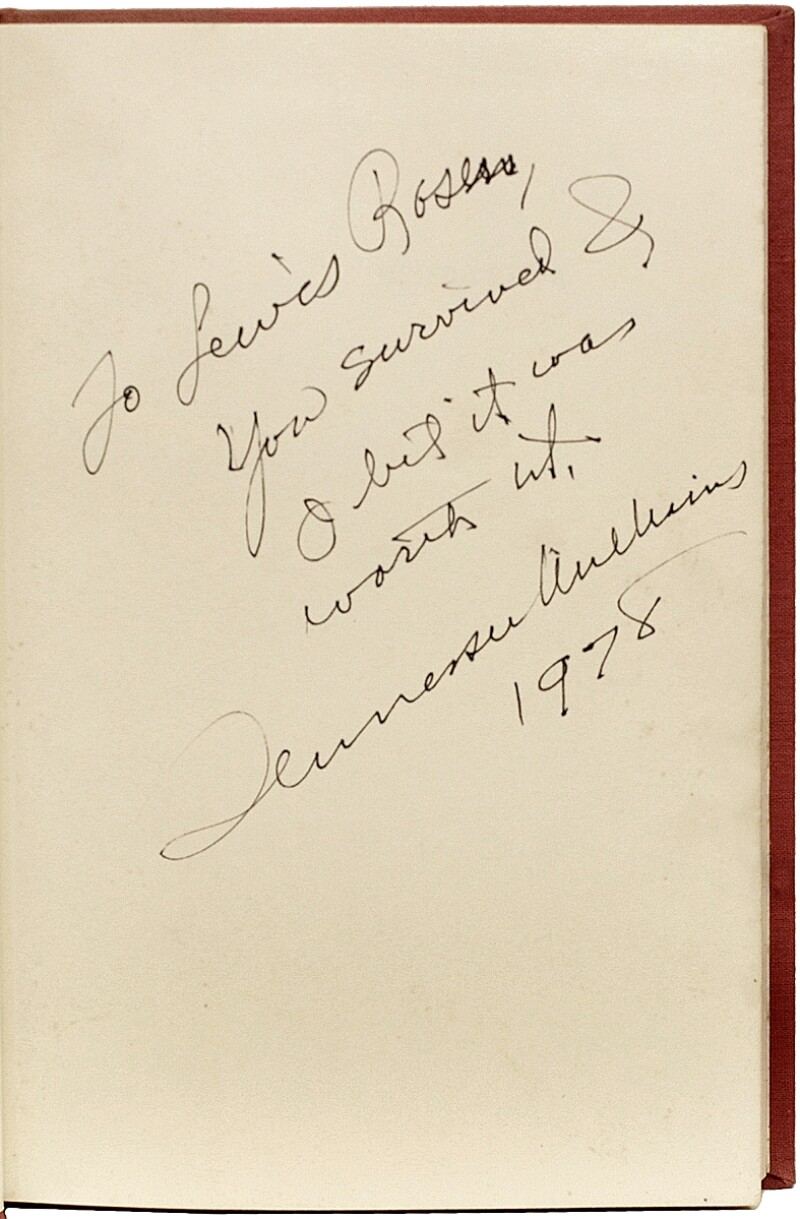 To Lewis Rosen,
You survived &
I bet it was
worth it.
Tennessee Williams
1978